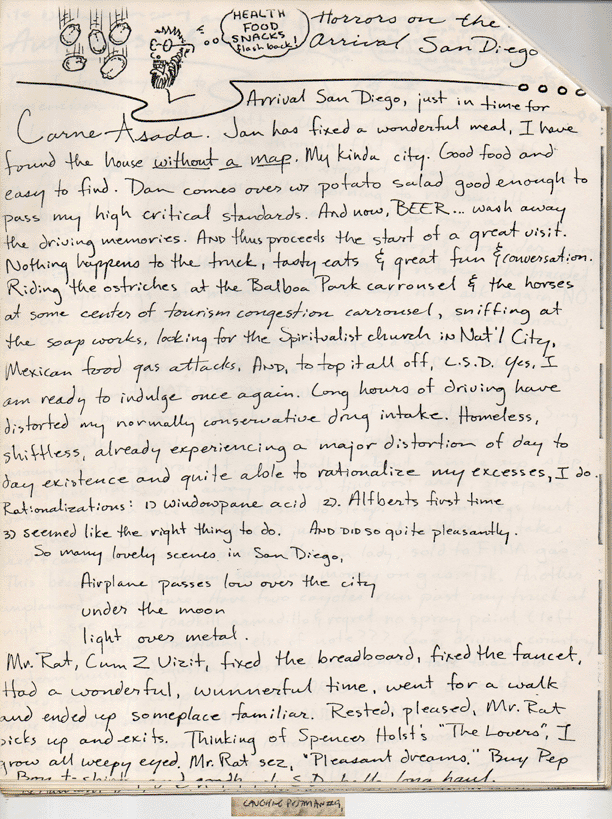 HEALTH
FOOD
SNACKS
flash back!
Horrors on the
Arrival San Diego
Arrival San Diego, just in time for
Carne Asada. Jan has fixed a wonderful meal, I have
found the house without a map. My kinda city. Good food and
easy to find. Dan comes over w/ potato salad good enough to
pass my high critical standards. And now, BEER... wash away
the driving memories. AND thus proceeds the start of a great visit.
Nothing happens to the truck, tasty eats & great fun & conversation.
Riding the ostriches at the Balboa Park carrousel & the horses
at some center of tourism congestion carrousel, sniffing at
the soap works, looking for the Spiritualist church in Nat'l City,
Mexican food gas attacks. AND, to top it all off, L.S.D. Yes, I
am ready to indulge once again. Long hours of driving have
distorted my normally conservative drug intake. Homeless,
shiftless, already experiencing a major distortion of day to
day existence and quite able to rationalize my excesses, I do.
Rationalizations: 1) windowpane acid 2). Alfberts first time
3) seemed like the right thing to do. AND DID so quite pleasantly.
So many lovely scenes in San Diego,
Airplane passes low over the city
under the moon
light over metal.
Mr. Rat, Cum Z Vizit, fixed the breadboard, fixed the faucet,
Had a wonderful, wunnerful time, went for a walk
and ended up someplace familiar. Rested, pleased, Mr. Rat
picks up and exits. Thinking of Spencer Holst's "The Lovers", I
grow all weepy eyed. Mr. Rat sez, "Pleasant dreams." Buy Pep
long haul.